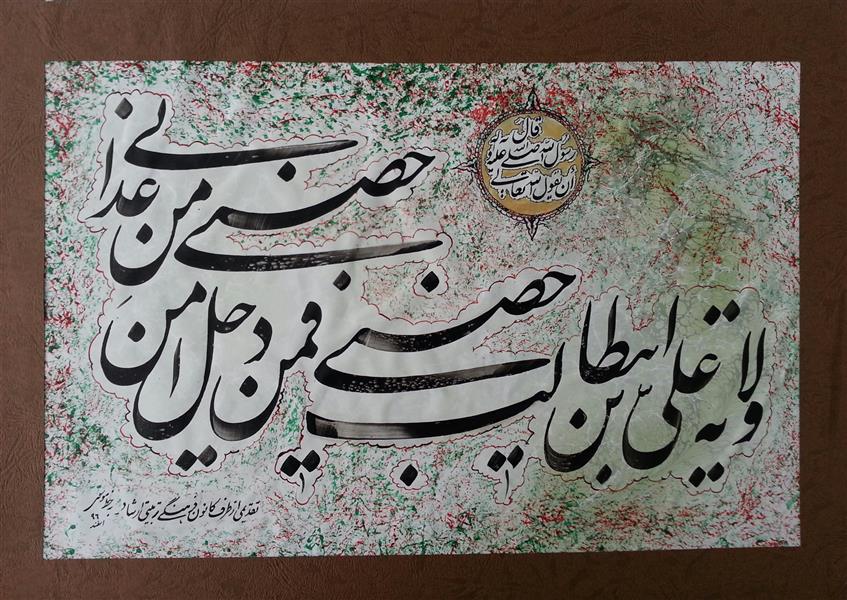 قال
رسول الله صلی الله علیه وآله
ان یقول الله تعالی
ولایة علی بن ابیطالب حصنی
فمن دخل حصنی امن من عذابی
تقدیمی از طرف کانون فرهنگی تربیتی ارشاد
اسفند ۹۶